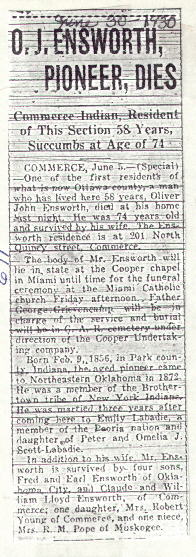 June 30 1930
O. J. ENSWORTH,
PIONEER, DIES
Commerce Indian, Resident
of This Section 58 Years,
Succumbs at Age of 74
COMMERCE, June 5.—(Special)
One of the first residents of
what is now Ottawa county, a man
who has lived here 58 years, Oliver
John Ensworth, died at his home
last night. He was 74 years old
and survived by his wife. The Ens-
worth residence is at 201 North
Quincy street, Commerce.
The body of Mr. Ensworth will
lie in state at the Cooper chapel
in Miami until time for the funeral
ceremony at the Miami Catholic
church Friday afternoon. Father
George will be in
charge of the service and burial
will be in G. A. R. cemetery under
direction of the Cooper Undertak-
ing company.
Born Feb. 9, 1856, in Park coun-
ty, Indiana, the aged pioneer came
to Northeastern Oklahoma in 1872.
He was a member of the Brother-
town tribe of New York Indians.
He was married three years after
coming here to Emily Labadie, a
member of the Peoria nation and
daughter of Peter and Omelia J.
Scott-Labadie.
In addition to his wife, Mr. Ens-
worth is survived by four sons,
Fred and Earl Ensworth of Okla-
homa City, and Claude and Wil-
liam Lloyd Ensworth, of Com-
merce; one daughter, Mrs. Robert
Young of Commerce, and one niece,
Mrs. R. M. Pope of Muskogee.